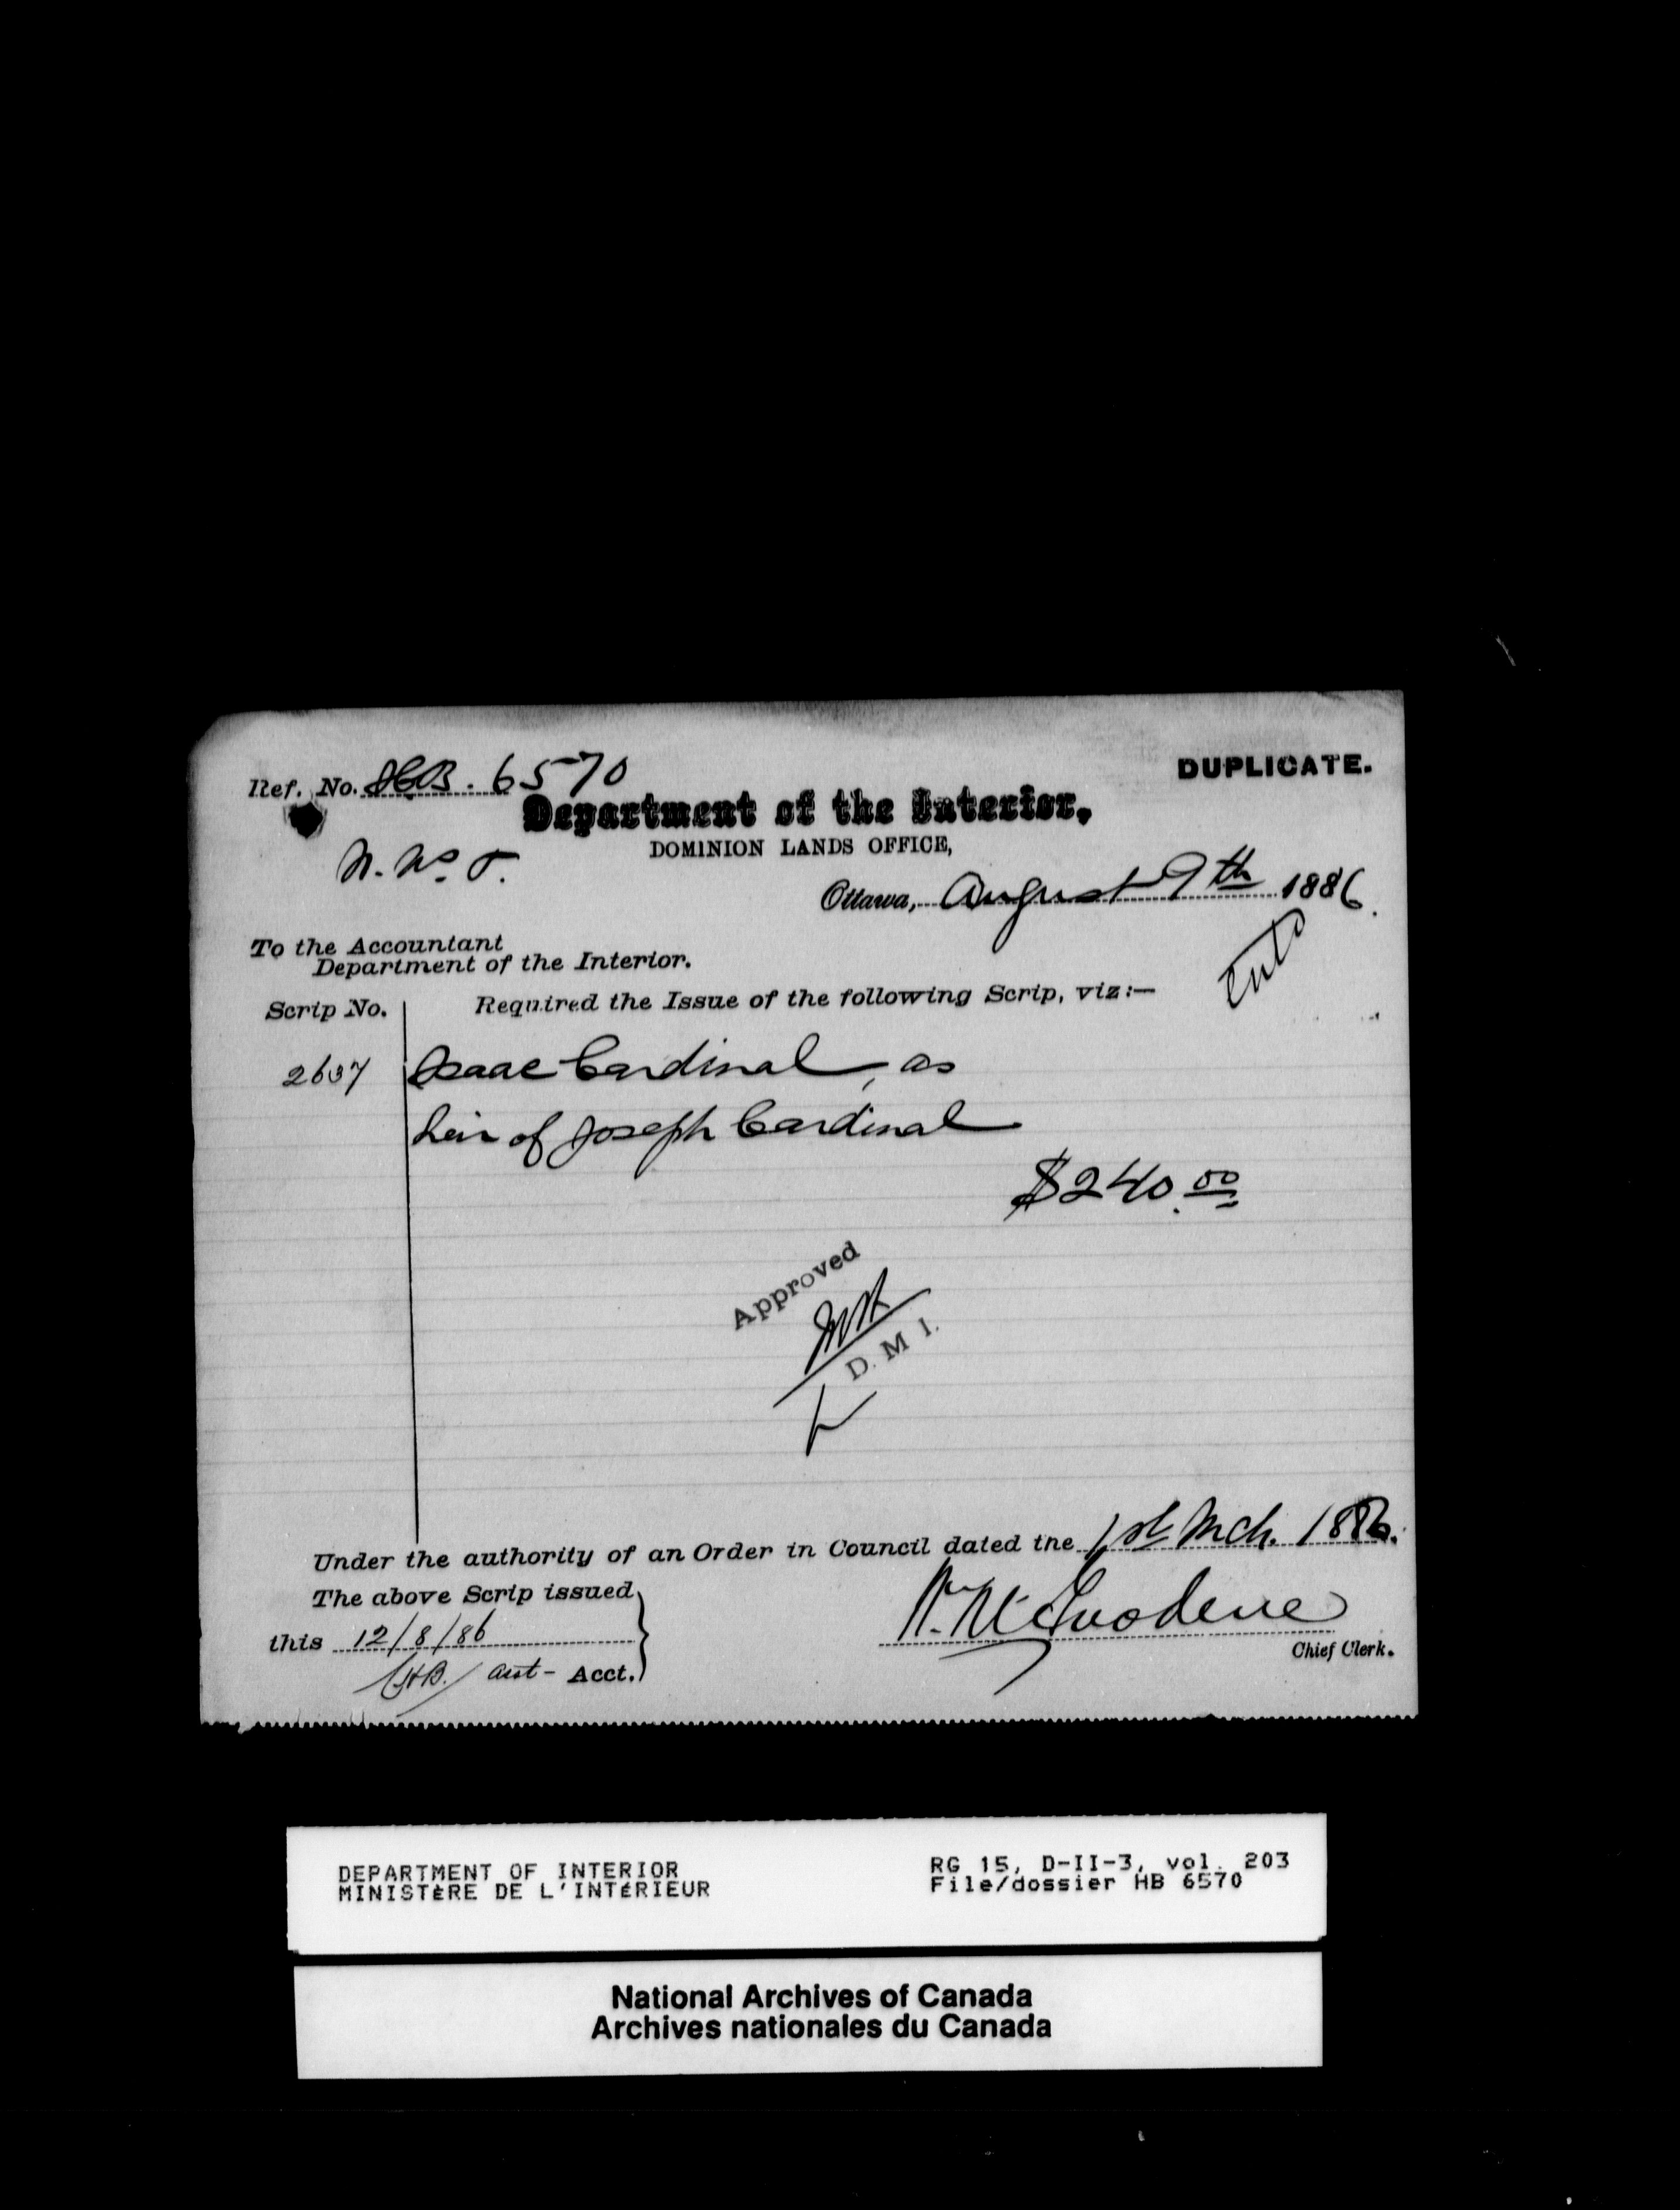 Ref. No. HB. 6570
DUPLICATE.
Department of the Interior,
DOMINION LANDS OFFICE,
N. W. T.
Ottawa, August 9th 1886.
To the Accountant
Department of the Interior.
Scrip No.
Required the Issue of the following Scrip, viz:—
2637 Isaac Cardinal, as
heir of Joseph Cardinal
$240.00
Approved
D. M. I.
Under the authority of an Order in Council dated the 1st Mch. 1886.
The above Scrip issued
this 12/8/86
Chief Clerk.
asst- Acct.
DEPARTMENT OF INTERIOR
MINISTÈRE DE L'INTÉRIEUR
RG 15, D-II-3, vol. 203
File/dossier HB 6570
National Archives of Canada
Archives nationales du Canada